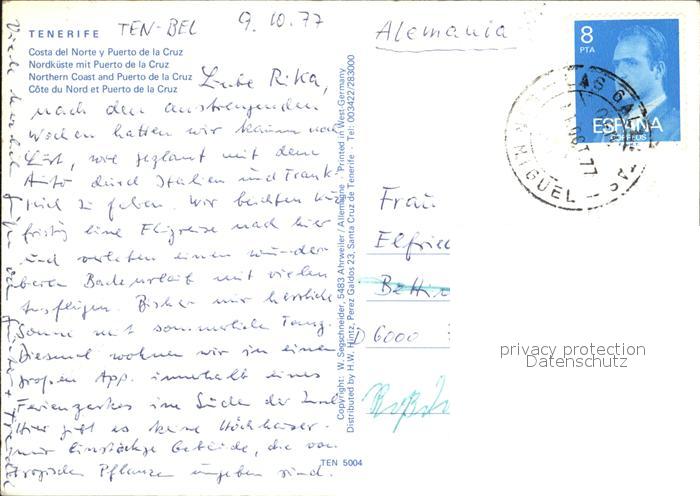 TENERIFE
TEN-BEL 9.10.77
Costa del Norte y Puerto de la Cruz
Nordküste mit Puerto de la Cruz
Northern Coast and Puerto de la Cruz
Côte du Nord et Puerto de la Cruz
Liebe Rika,
nach den anstrengenden
Wochen hatten wir kaum noch
Lust, wie geplant mit dem
Auto durch Italien und Frank-
reich zu fahren. Wir buchten kurz
fristig eine Flugreise nach hier
und verleben einen wunder
baren Badeurlaub mit vielen
Ausflügen. Bisher nur herrliche
Sonne und sommerliche Temp.
Diesmal wohnen wir in einem
großen App. innerhalb eines
Ferienparkes im Süden der Insel
Hier gibt es keine Hochhäuser
nur Einstöckige Gebäude, die von
tropischen Pflanzen umgeben sind.
Viele
TEN 5004
Copyright: W. Segschneider, 5483 Ahrweiler/Allemagne · Printed in West-Germany
Distributed by H.W. Hintz, Perez Galdos 23, Santa Cruz de Tenerife · Tel: 003422/283000
Alemania
8
PTA
ESPAÑA
CORREOS
OCT 77
MIGUEL
Frau
Elfried
Bettin
D 6000
privacy protection
Datenschutz